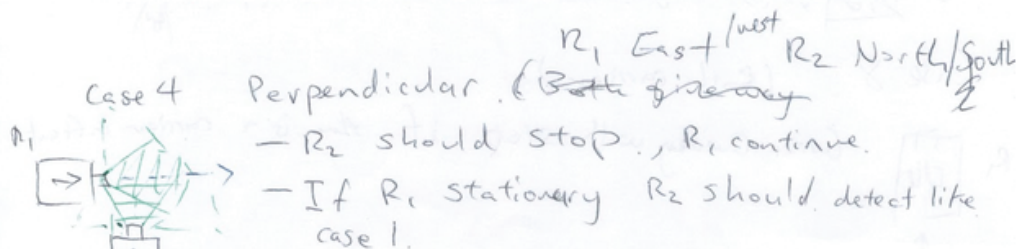 R1 East/west R2 North/South
Case 4 Perpendicular (Both giveway
R1
- R2 should stop., R1 continue.
- If R1 stationary R2 should detect like
case 1.